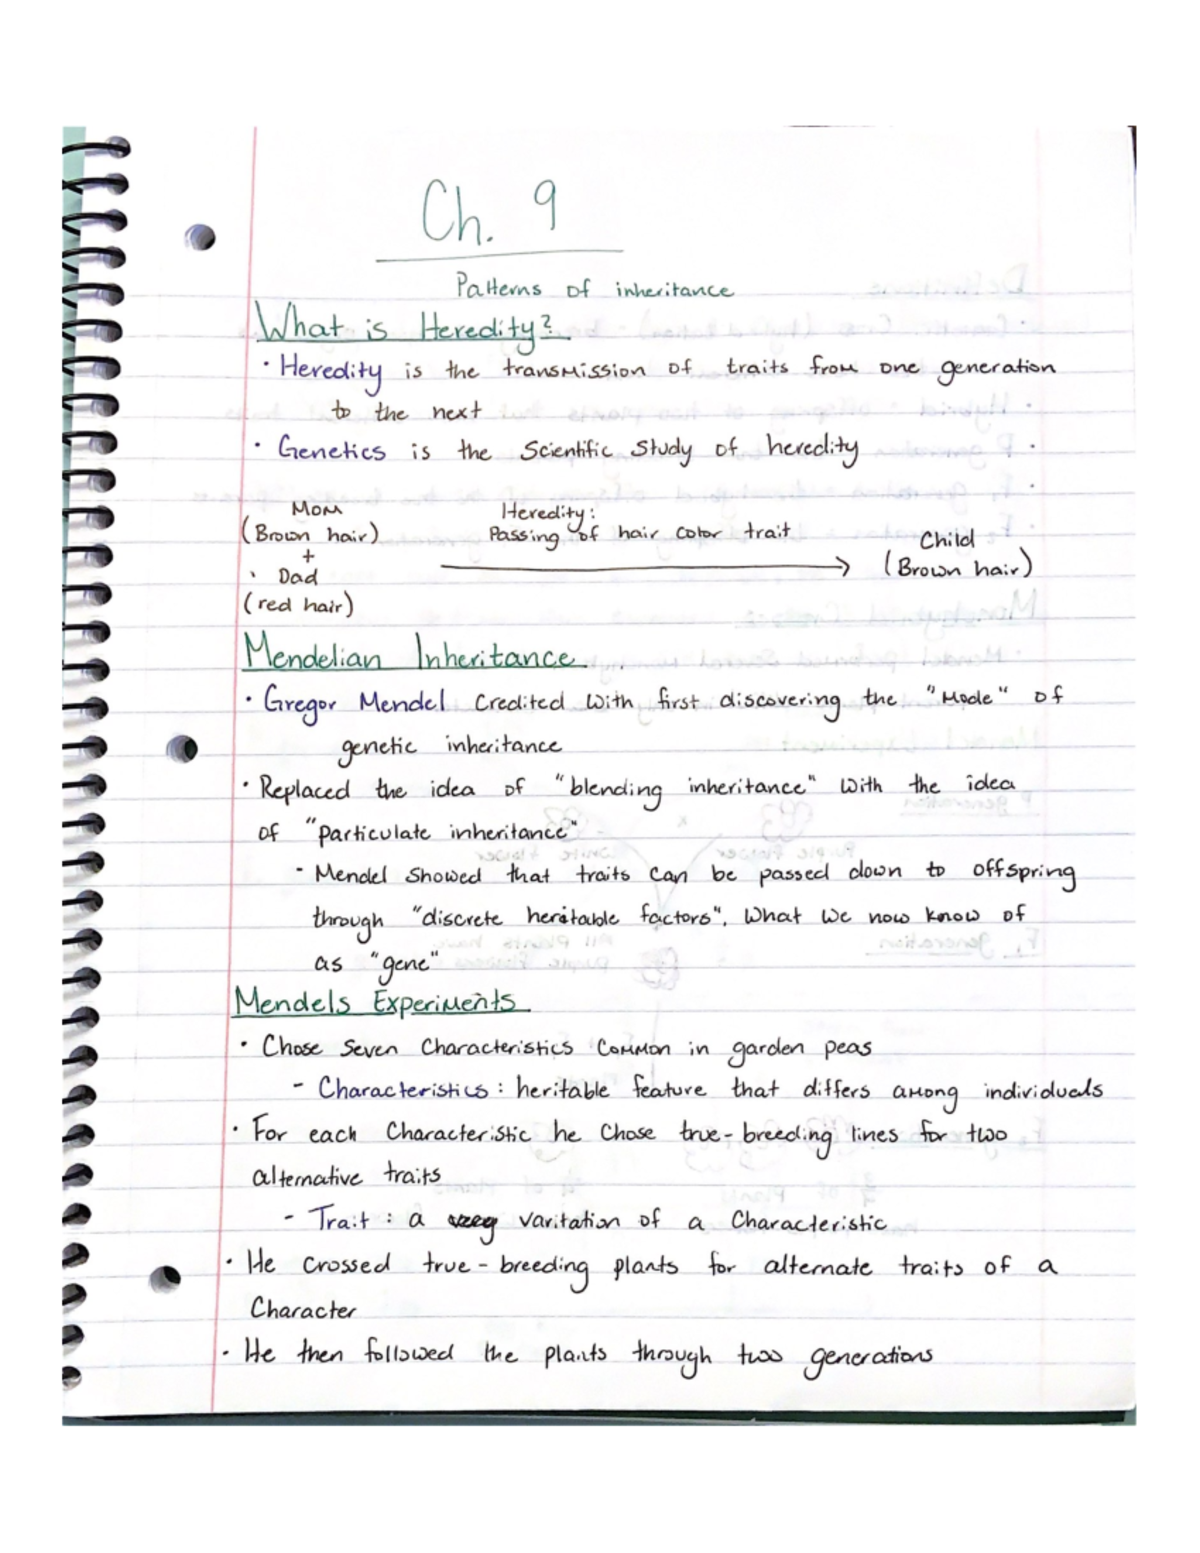 Ch. 9
Patterns of inheritance
What is Heredity?
· Heredity is the transmission of traits from one generation
to the next
· Genetics is the Scientific Study of heredity
Mom
(Brown hair)
+
· Dad
(red hair)
Heredity:
Passing of hair color trait
Child
(Brown hair)
Mendelian Inheritance
· Gregor Mendel Credited with first discovering the "Mode" of
genetic inheritance
· Replaced the idea of "blending inheritance" with the idea
of "particulate inheritance"
- Mendel showed that traits can be passed down to offspring
through "discrete heritable factors". What we now know of
as "gene"
Mendels Experiments
· Chose Seven Characteristics Common in garden peas
- Characteristics: heritable feature that differs among individuals
· For each Characteristic he chose true-breeding lines for two
alternative traits
- Trait: a varitation of a Characteristic
· He crossed true-breeding plants for alternate traits of a
Character
· He then followed the plants through two generations